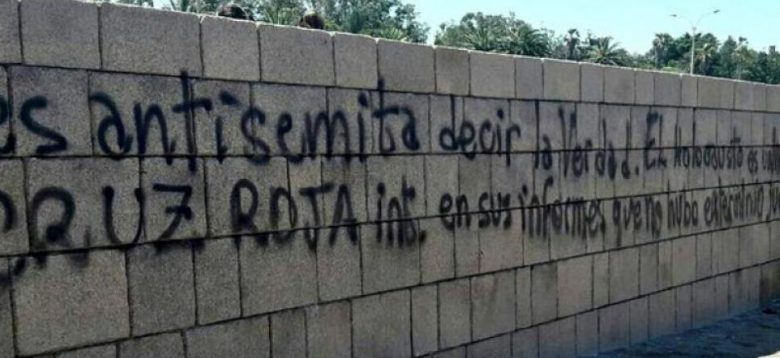 es antisemita decir la Verdad. EL Holocausto es
CRUZ ROJA int. en sus informes que no hubo